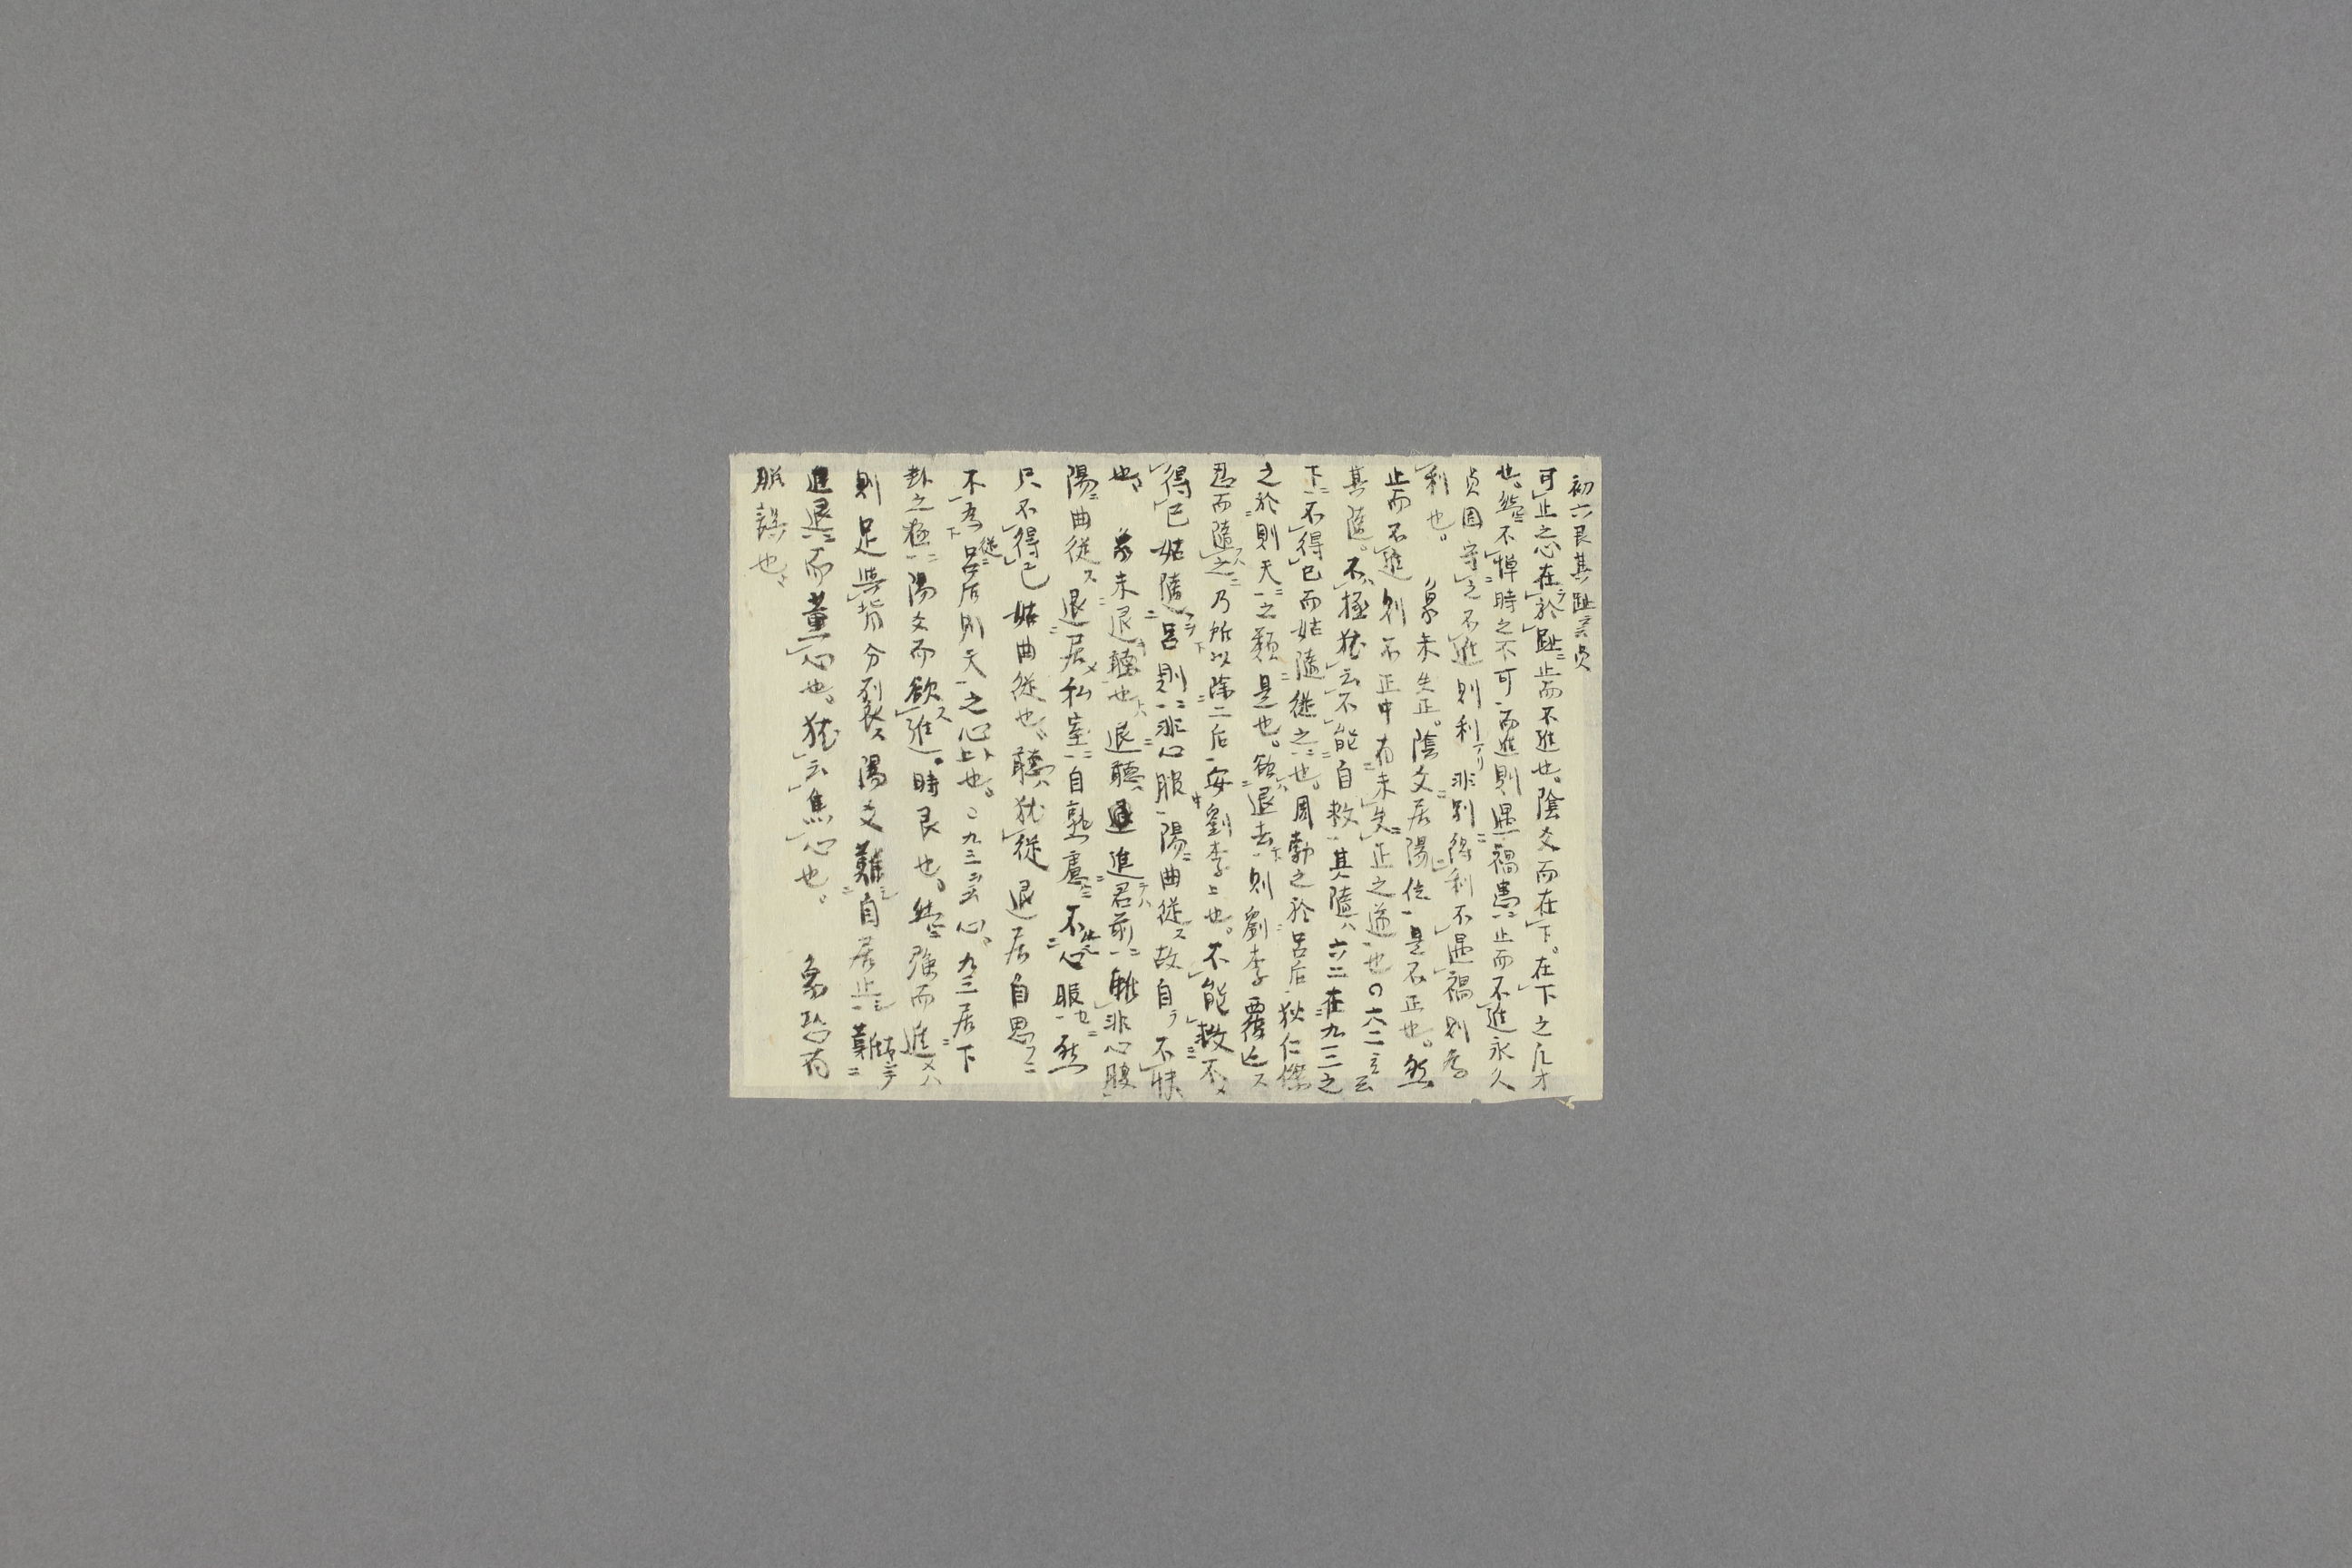 初六艮其趾云云貞
可止之心在於趾止而不進也。陰爻而在下。在下之凡才
也。然不憚時之不可而進則遇禍患止而不進永久
貞固守之不進則利非別得利不遇禍則為
利也。 象未失正。陰爻居陽位是不正也。然
止而不進則不正中有未失正之道也〇六二云云
其隨。不極猶云不能自救其隨六二在九三之
下不得已而姑隨從之也。周勃之於呂后狄仁傑
之於則天之類是也。欲退去則劉李覆亡ス
忍而隨之乃所以除二后安劉李上也。不能救不
得已姑隨呂則非心服陽曲從ス故自不快
也 象未退聽也退聽進君前躰非心腹
陽曲從ス退居私室自熟慮不心服然
只不得已姑曲從也聽猶從退居自思
不為從呂后則天之心上也。〇九三云云心。九三居下
卦之極陽爻而欲進。時艮也。然強而進
則足與背分列裂陽爻難自居止
進退而薰心也。猶云焦心也。 象恐有
脱誤也